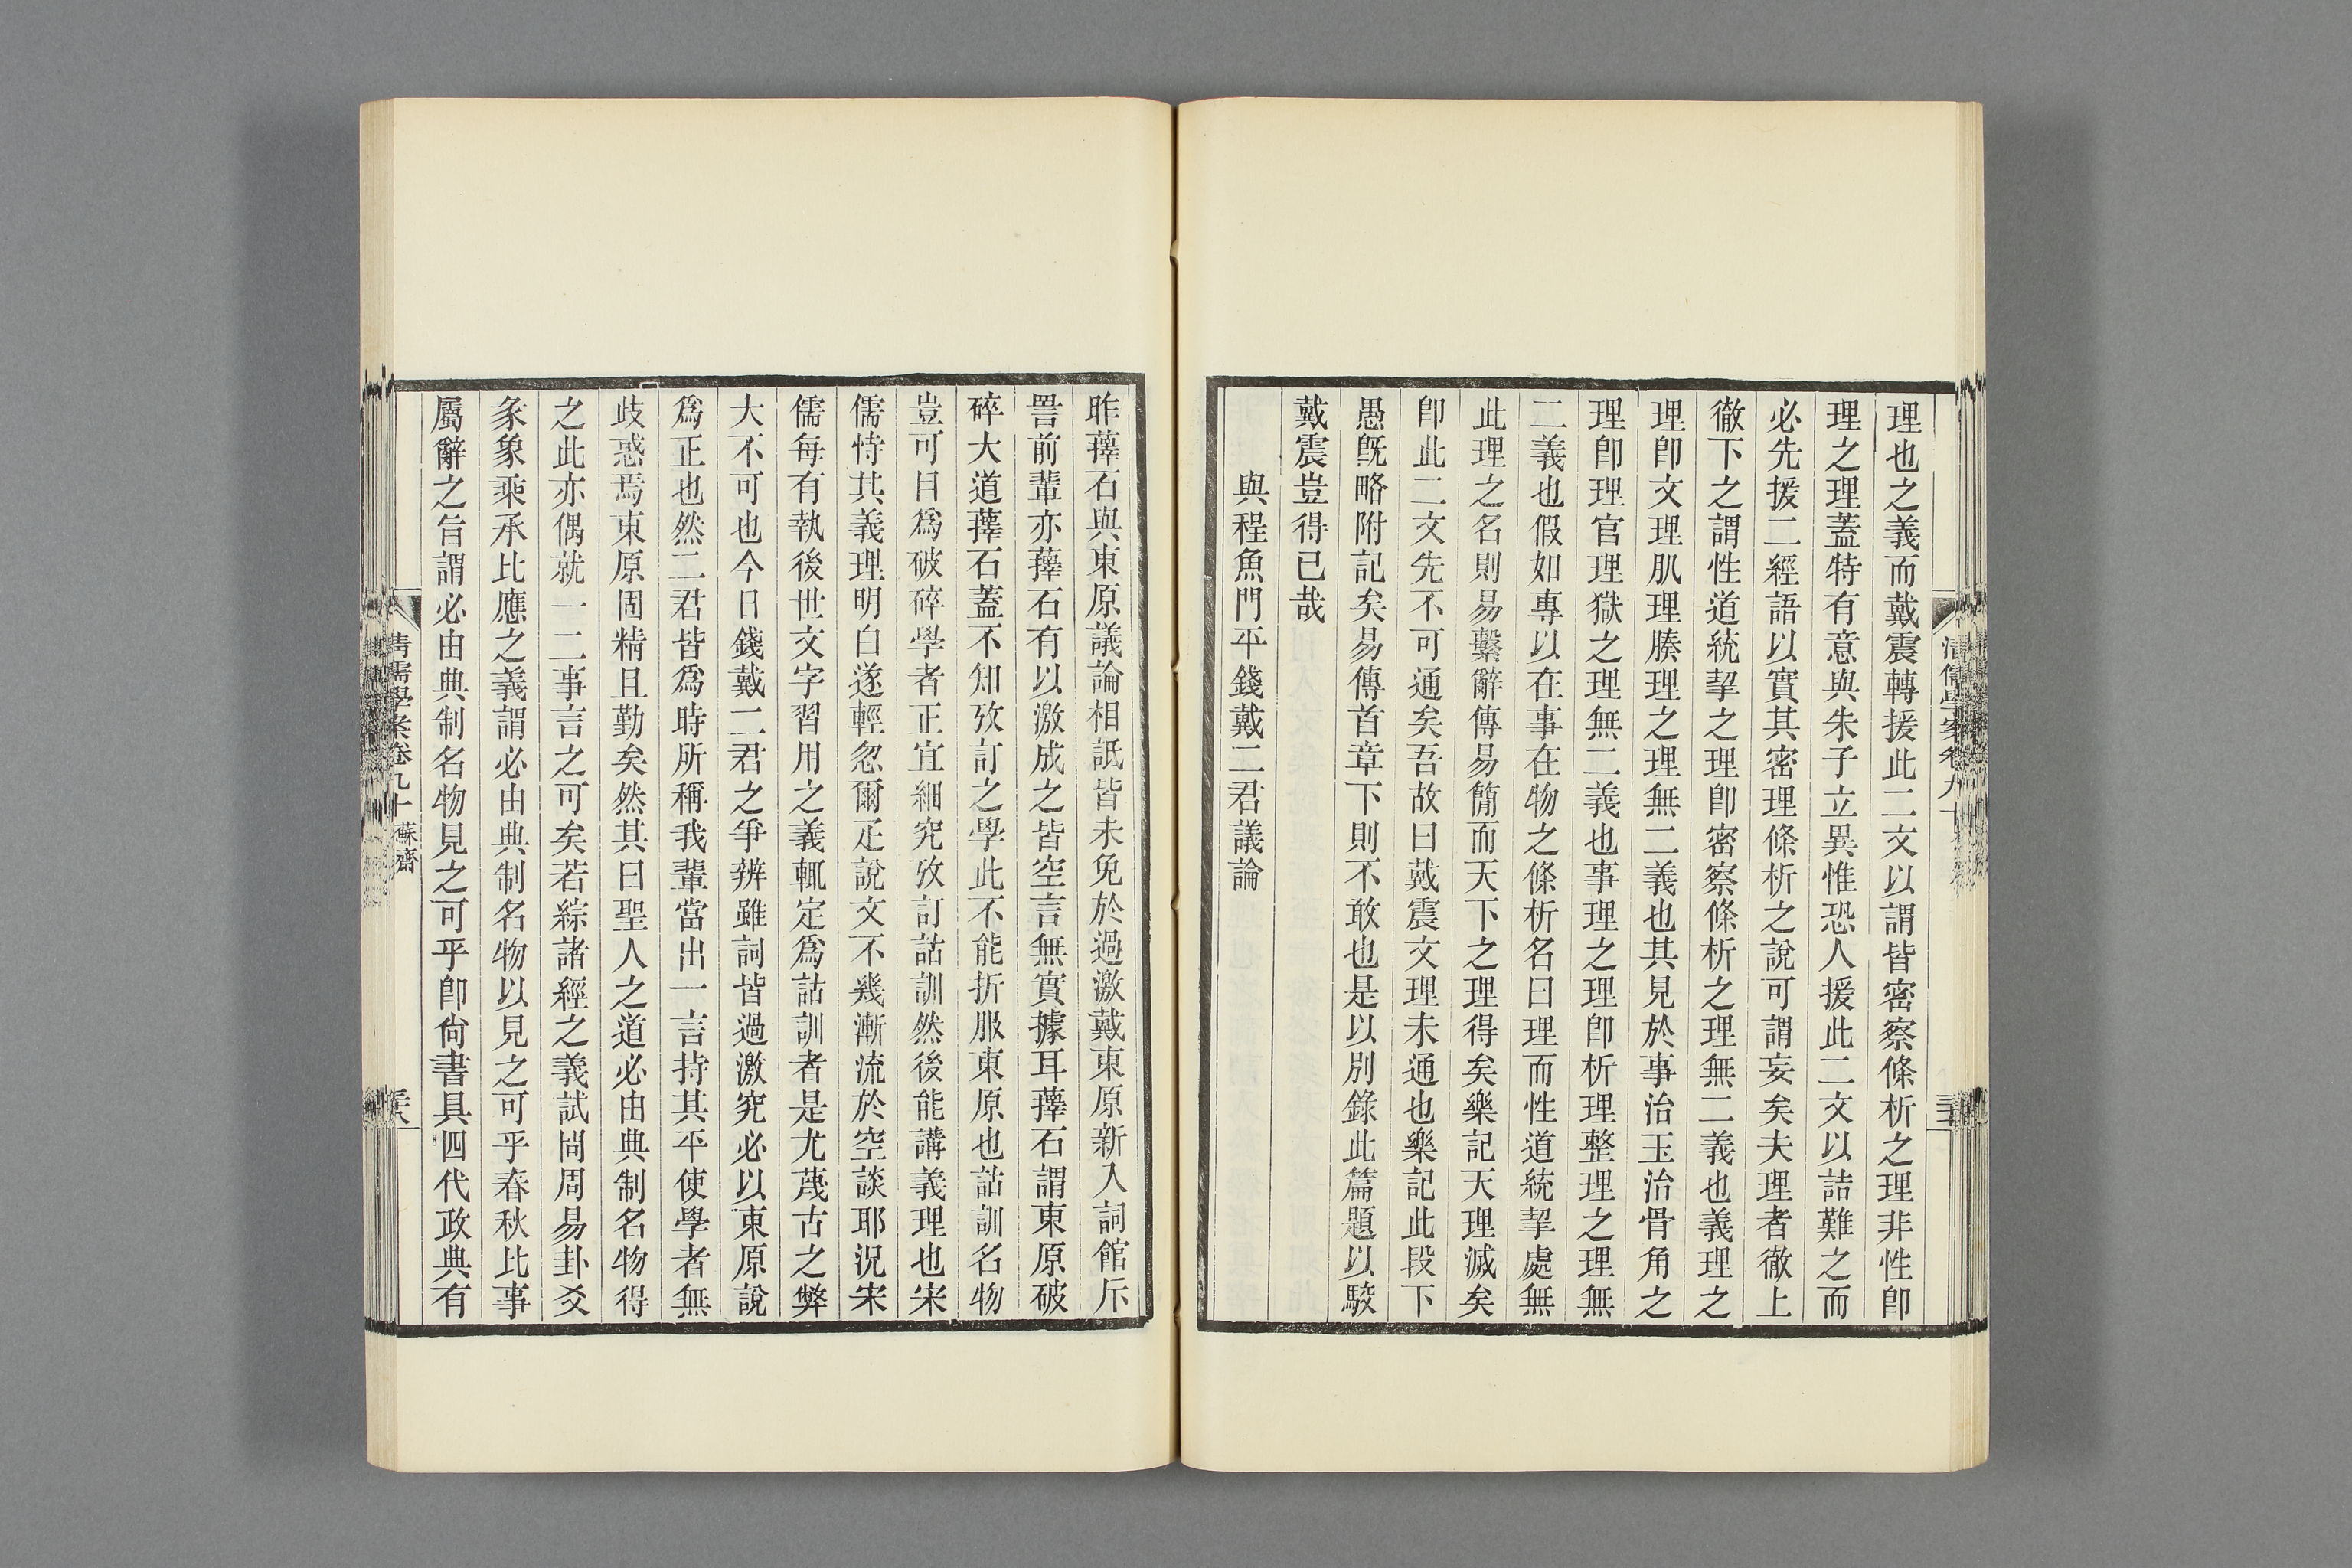 理也之義而戴震轉援此二文以謂皆密察條析之理非性卽
理之理蓋特有意與朱子立異惟恐人援此二文以詰難之而
必先援二經語以實其密理條析之說可謂妄矣夫理者徹上
徹下之謂性道統挈之理卽密察條析之理無二義也義理之
理卽文理肌理腠理之理無二義也其見於事治玉治骨角之
理卽理官理獄之理無二義也事理之理卽析理整理之理無
二義也假如專以在事在物之條析名曰理而性道統挈處無
此理之名則易繫辭傳易簡而天下之理得矣樂記天理滅矣
卽此二文先不可通矣吾故曰戴震文理未通也樂記此段下
愚旣略附記矣易傳首章下則不敢也是以別錄此篇題以駁
戴震豈得已哉
與程魚門平錢戴二君議論
清儒學案卷九十
昨蘀石與東原議論相詆皆未免於過激戴東原新入詞館斥
詈前輩亦蘀石有以激成之皆空言無實據耳蘀石謂東原破
碎大道蘀石蓋不知攷訂之學此不能折服東原也詁訓名物
豈可目爲破碎學者正宜細究攷訂詁訓然後能講義理也宋
儒恃其義理明白遂輕忽爾疋說文不幾漸流於空談耶況宋
儒每有執後世文字習用之義輒定爲詁訓者是尤蔑古之弊
大不可也今日錢戴二君之爭辨雖詞皆過激究必以東原說
爲正也然二君皆爲時所稱我輩當出一言持其平使學者無
歧惑焉東原固精且勤矣然其曰聖人之道必由典制名物得
之此亦偶就一二事言之可矣若綜諸經之義試問周易卦爻
彖象乘承比應之義謂必由典制名物以見之可乎春秋比事
屬辭之旨謂必由典制名物見之可乎卽尙書具四代政典有
清儒學案卷九十 蘇齋